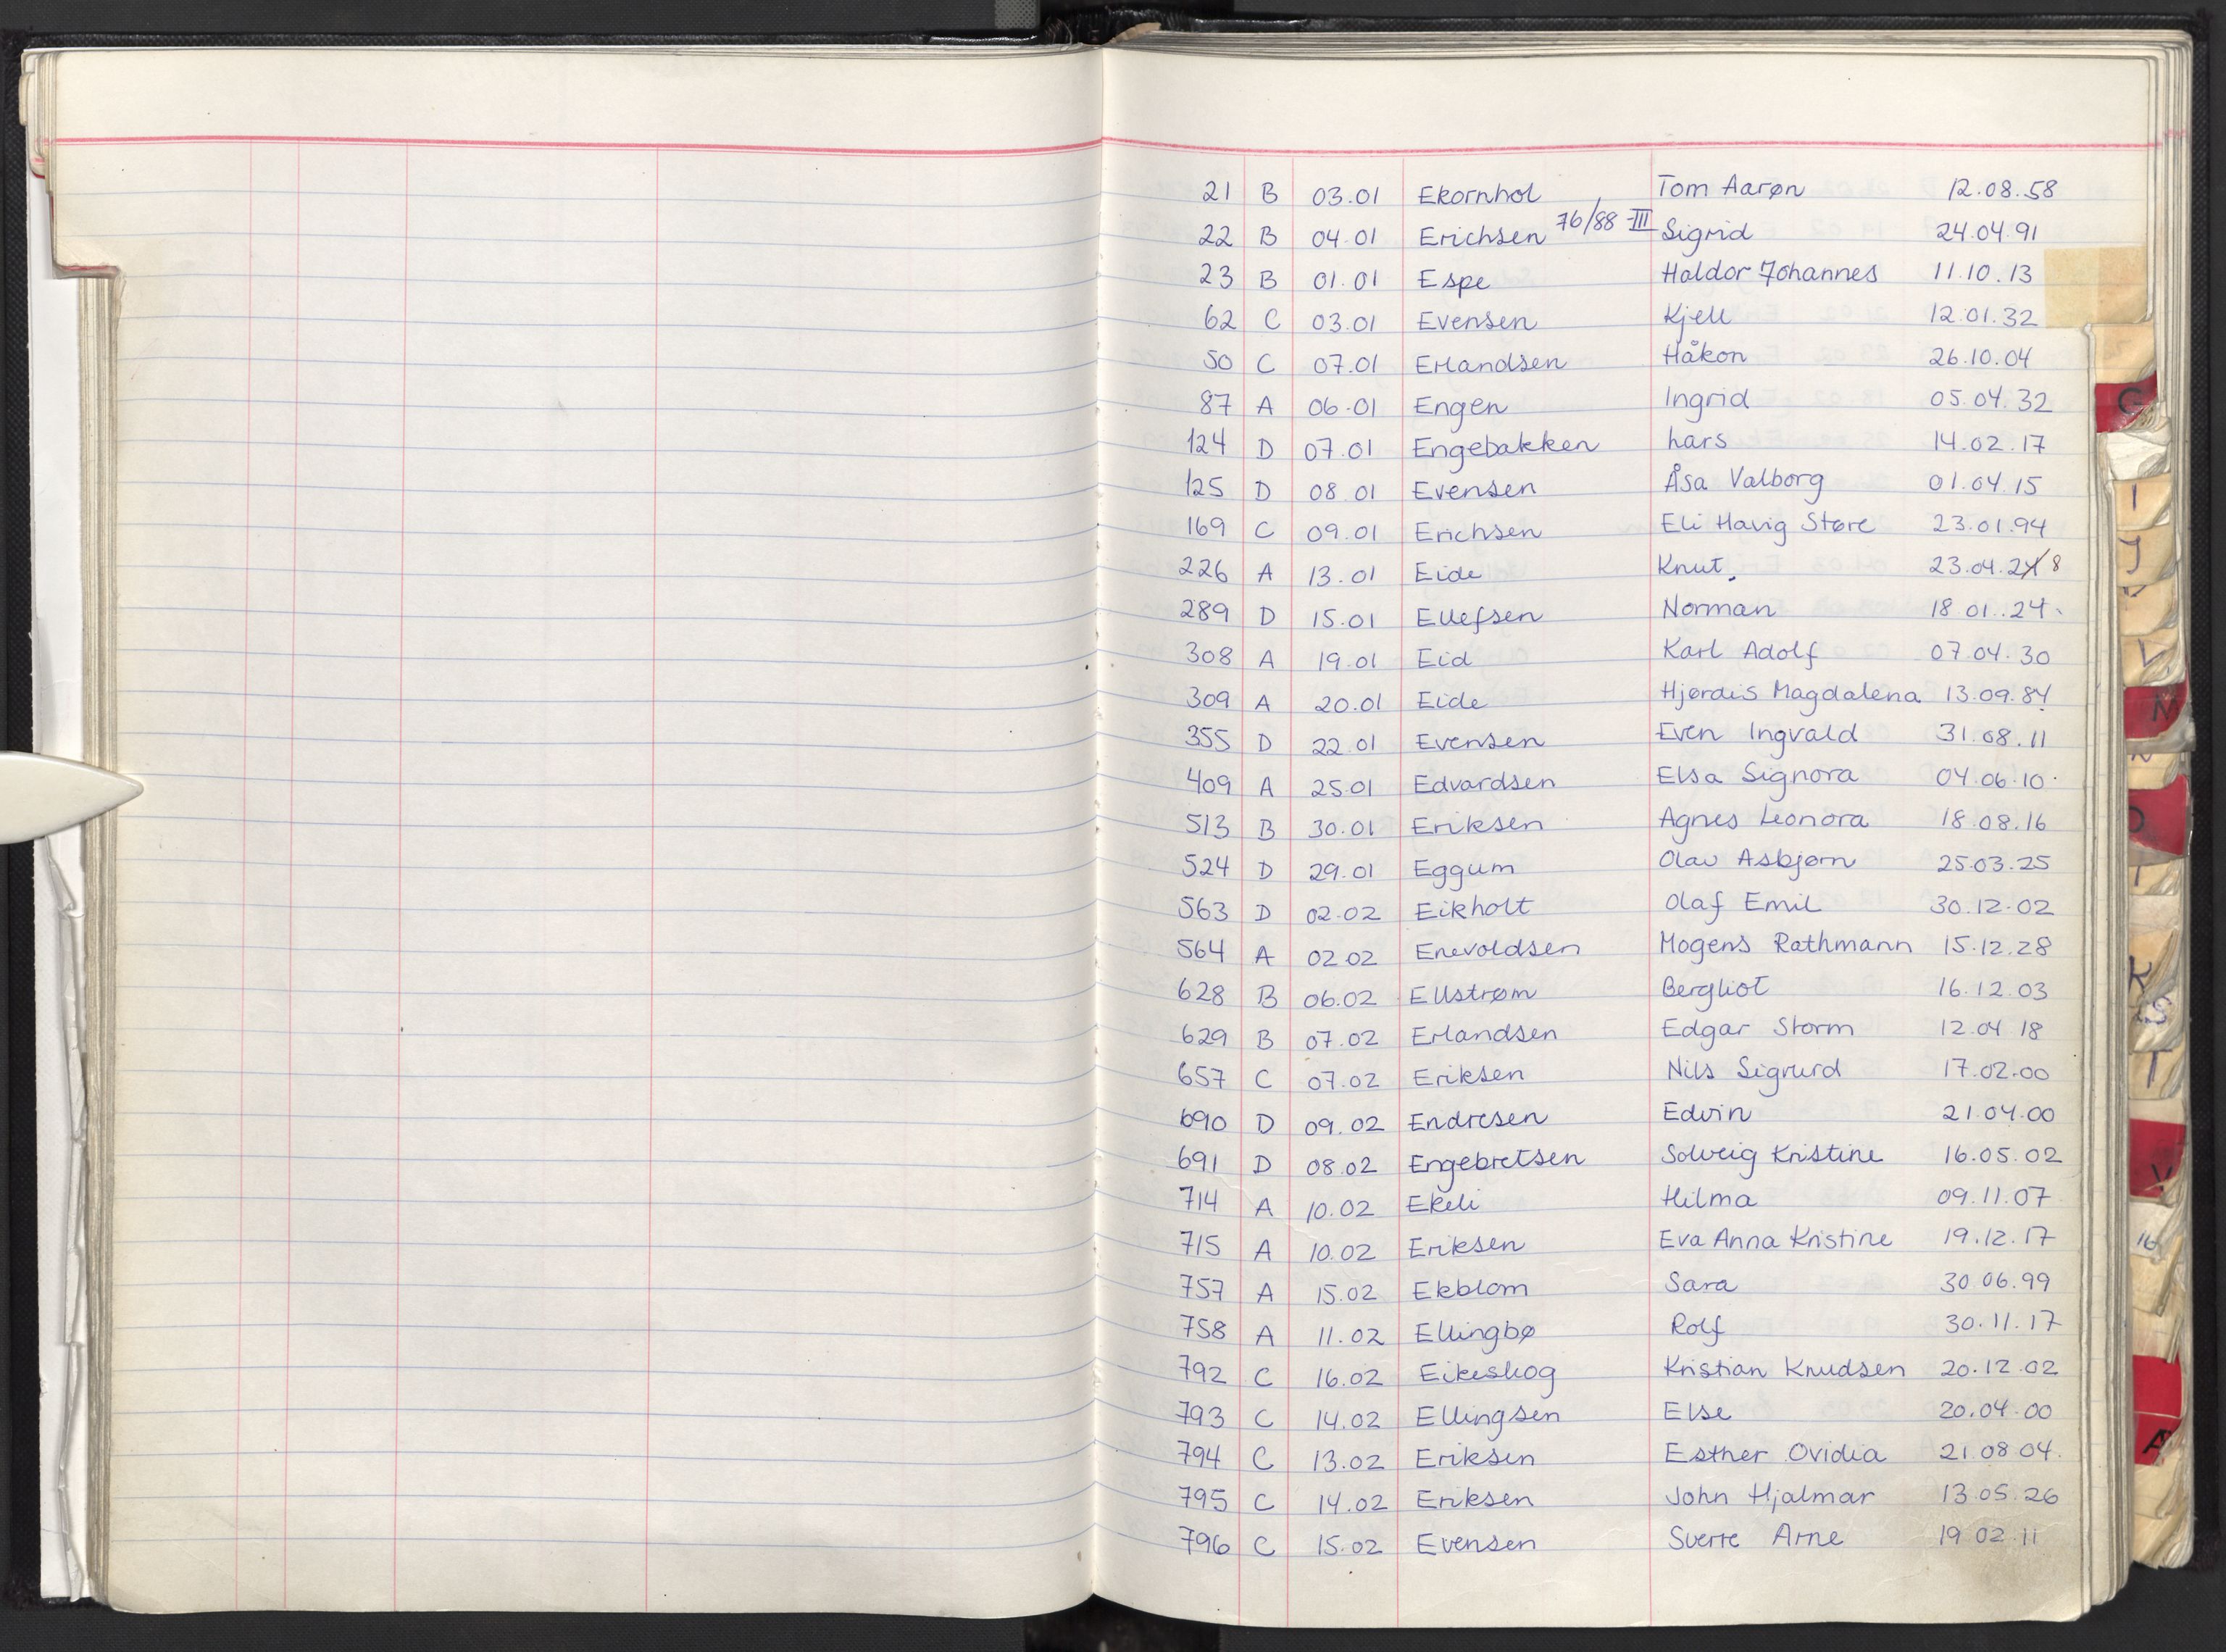 21 B 03.01 Ekornhol Tom Aarøn 12.08.58
22 B 04.01 Erichsen 76/88 III Sigrid 24.04.91
23 B 01.01 Espe Haldor Johannes 11.10.13
62 C 03.01 Evensen Kjell 12.01.32
50 C 07.01 Erlandsen Håkon 26.10.04
87 A 06.01 Engen Ingrid 05.04.32
124 D 07.01 Engebakken Lars 14.02.17
125 D 08.01 Evensen Åsa Valborg 01.04.15
169 C 09.01 Erichsen Eli Havig Støre 23.01.94
226 A 13.01 Eide Knut 23.04.2 8
289 D 15.01 Ellefsen Norman 18.01.24
308 A 19.01 Eid Karl Adolf 07.04.30
309 A 20.01 Eide Hjørdis Magdalena 13.09.84
355 D 22.01 Evensen Even Ingvald 31.08.11
409 A 25.01 Edvardsen Elsa Signora 04.06.10
513 B 30.01 Eriksen Agnes Leonora 18.08.16
524 D 29.01 Eggum Olav Asbjørn 25.03.25
563 D 02.02 Eikholt Olaf Emil 30.12.02
564 A 02.02 Enevoldsen Mogens Rathmann 15.12.28
628 B 06.02 Ellstrøm Bergliot 16.12.03
629 B 07.02 Erlandsen Edgar Storm 12.04 18
657 C 07.02 Eriksen Nils Sigrurd 17.02.00
690 D 09.02 Endresen Edvin 21.04.00
691 D 08.02 Engebretsen Solveig Kristine 16.05.02
714 A 10.02 Ekeli Hilma 09.11.07
715 A 10.02 Eriksen Eva Anna Kristine 19.12.17
757 A 15.02 Ekblom Sara 30.06.99
758 A 11.02 Ellingbø Rolf 30.11.17
792 C 16.02 Eikeskog Kristian Knudsen 20.12.02
793 C 14.02 Ellingsen Else 20.04.00
794 C 13.02 Eriksen Esther Ovidia 21.08 04.
795 C 14.02 Eriksen John Hjalmar 13.05.26
796 C 15.02 Evensen Sverre Arne 19 02 11
G
I
J
L
M
N
K
S
T
V